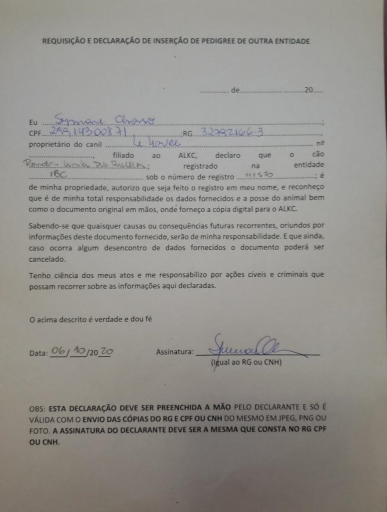 REQUISIÇÃO E DECLARAÇÃO DE INSERÇÃO DE PEDIGREE DE OUTRA ENTIDADE
de 20
Eu
CPF RG
proprietário do canil nº
, filiado ao ALKC, declaro que o cão
registrado na entidade
IBC sob o número de registro ; é
de minha propriedade, autorizo que seja feito o registro em meu nome, e reconheço
que é de minha total responsabilidade os dados fornecidos e a posse do animal bem
como o documento original em mãos, onde forneço a cópia digital para o ALKC.
Sabendo-se que quaisquer causas ou consequências futuras recorrentes, oriundos por
informações deste documento fornecido, serão de minha responsabilidade. E que ainda,
caso ocorra algum desencontro de dados fornecidos o documento poderá ser
cancelado.
Tenho ciência dos meus atos e me responsabilizo por ações cíveis e criminais que
possam recorrer sobre as informações aqui declaradas.
O acima descrito é verdade e dou fé
Data: 06/10/2020 Assinatura:
(Igual ao RG ou CNH)
OBS: ESTA DECLARAÇÃO DEVE SER PREENCHIDA A MÃO PELO DECLARANTE E SÓ É
VÁLIDA COM O ENVIO DAS CÓPIAS DO RG E CPF OU CNH DO MESMO EM JPEG, PNG OU
FOTO. A ASSINATURA DO DECLARANTE DEVE SER A MESMA QUE CONSTA NO RG CPF
OU CNH.